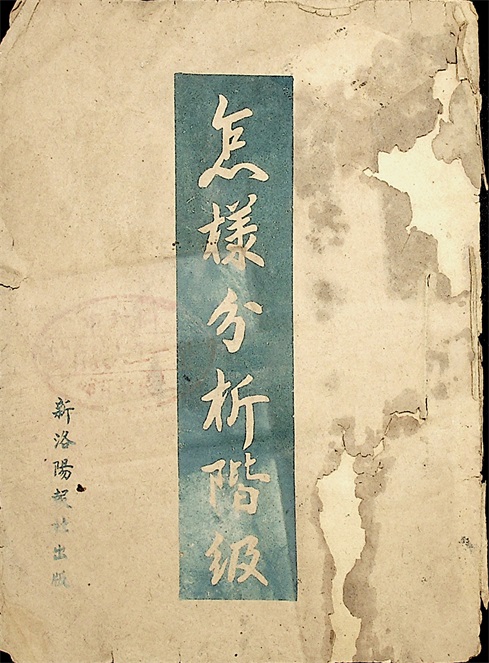 怎樣分析階級
新洛陽報社出版